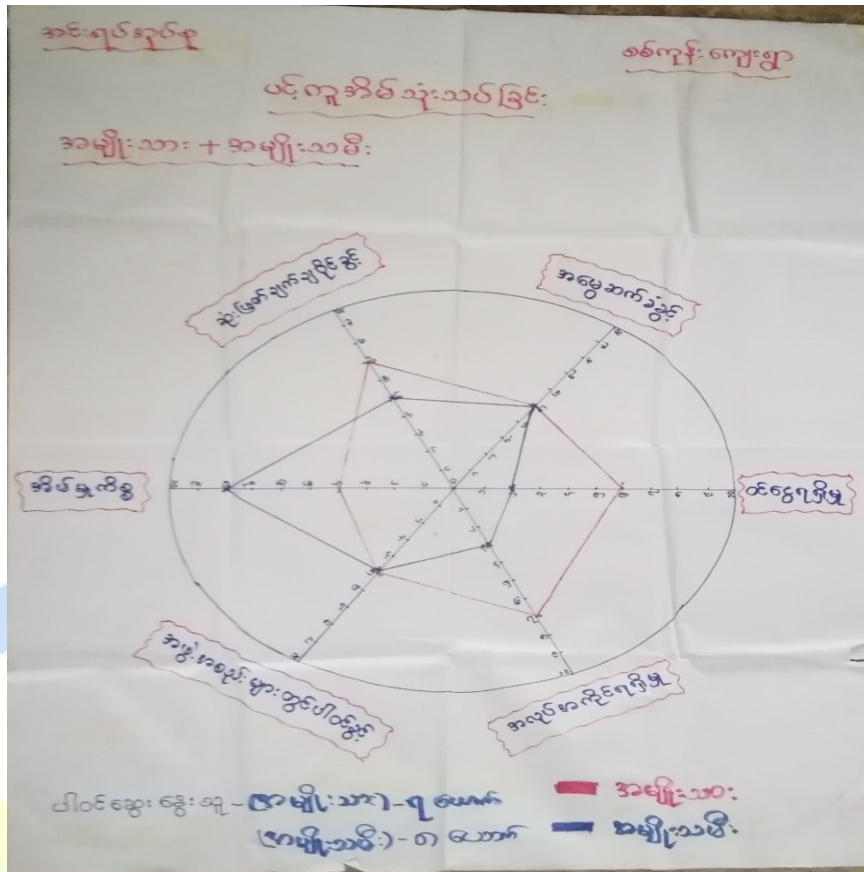 အင်းရပ်အုပ်စု
စစ်ကုန်းကျေးရွာ
ပင့်ကူအိမ်သုံးသပ်ခြင်း
အမျိုးသား + အမျိုးသမီး
ဆုံးဖြတ်ချက်ချပိုင်ခွင့်
အမွေဆက်ခံခွင့်
အိမ်မှုကိစ္စ
ဝင်ငွေရရှိမှု
အဖွဲ့အစည်းများတွင်ပါဝင်ခွင့်
အလုပ်အကိုင်ရရှိမှု
ပါဝင်ဆွေးနွေးသူ - (အမျိုးသား) - ၅ ယောက်
(အမျိုးသမီး) - ၈ ယောက်
အမျိုးသား
အမျိုးသမီး